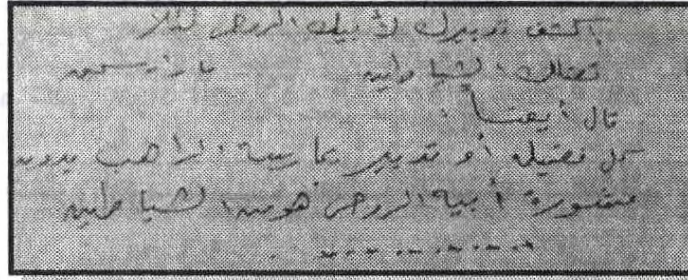 إكشف تدبيرك لأبيك الروحى لئلا
تضلك الشياطين مارإسحق
قال أيضاً :
كل فضيلة أو تدبير يمارسه الراهب بدون
مشورة أبيه الروحى هو من الشياطين